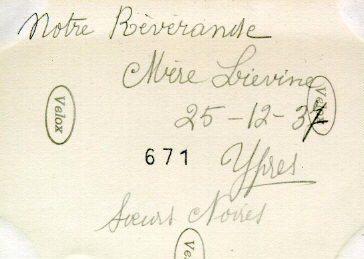 Notre Révérande
Mère Lievine
Velox
Velox
25-12-37
671 Ypres
Sœurs Noires
Velox